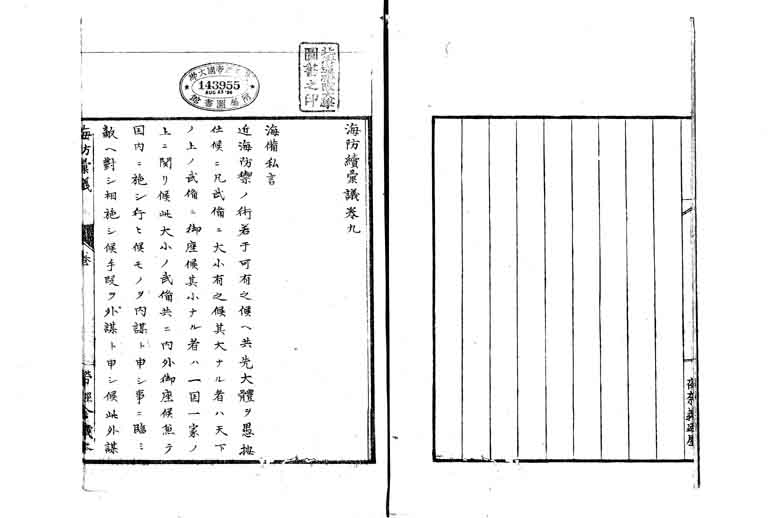 海防續彙議巻九
海備私言
近海防禦ノ術若干可有之候ヘ共先大體ヲ愚按
仕候ニ凡武備ニ大小有之候其大ナル者ハ天下
ノ上ノ武備ニ御座候其小ナル者ハ一国一家ノ
上ニ関リ候此大小ノ武備共ニ内外御座候魚テ
国内ニ施シ行ヒ候モノヲ内謀ト申シ事ニ臨ミ
敵ヘ對シ相施シ候手段ヲ外謀ト申シ候此外謀
海防彙議
巻
143955
圖書之印